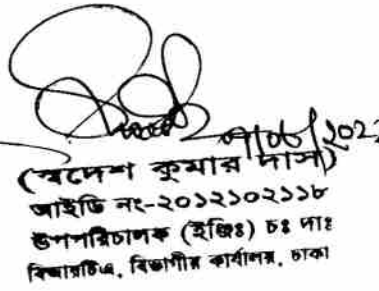 (স্বদেশ কুমার দাস)
আইডি নং-২০১২১০২১১৮
উপপরিচালক (ইঞ্জিঃ) চঃ দাঃ
বিআরটিএ, বিভাগীয় কার্যালয়, ঢাকা